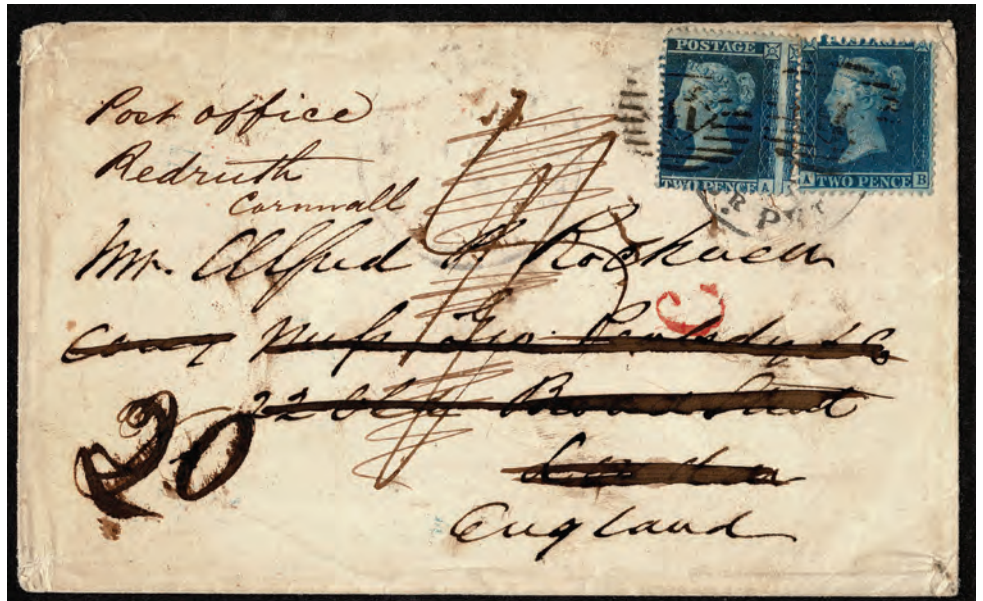 POSTAGE
TWO PENCE A
A TWO PENCE B
R P
Post office
Redruth
Cornwall
Mr. Alfred P Rockwell
Geo. Peabody & Co
22 Old Broad Street
London
England
20